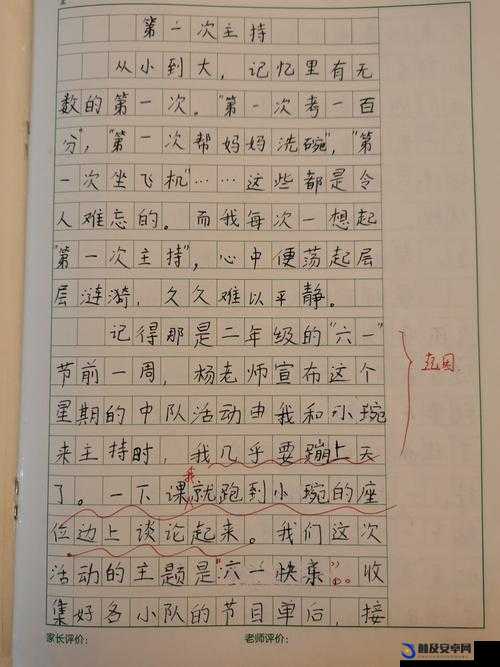 第一次主持
从小到大，记忆里有无
数的第一次。“第一次考一百
分”，“第一次帮妈妈洗碗”，“第
一次坐飞机”……这些都是令
人难忘的。而我每次一想起
“第一次主持”，心中便荡起层
层涟漪，久久难以平静。
记得那是二年级的“六一”
节前一周，杨老师宣布这个
星期的中队活动由我和小琬
来主持时，我几乎要蹦上天
了。一下课我就跑到小琬的座
位边上谈论起来。我们这次
活动的主题是“六一快乐”。收
集好各小队的节目单后，接
起因
家长评价：
老师评价：
触及安卓网